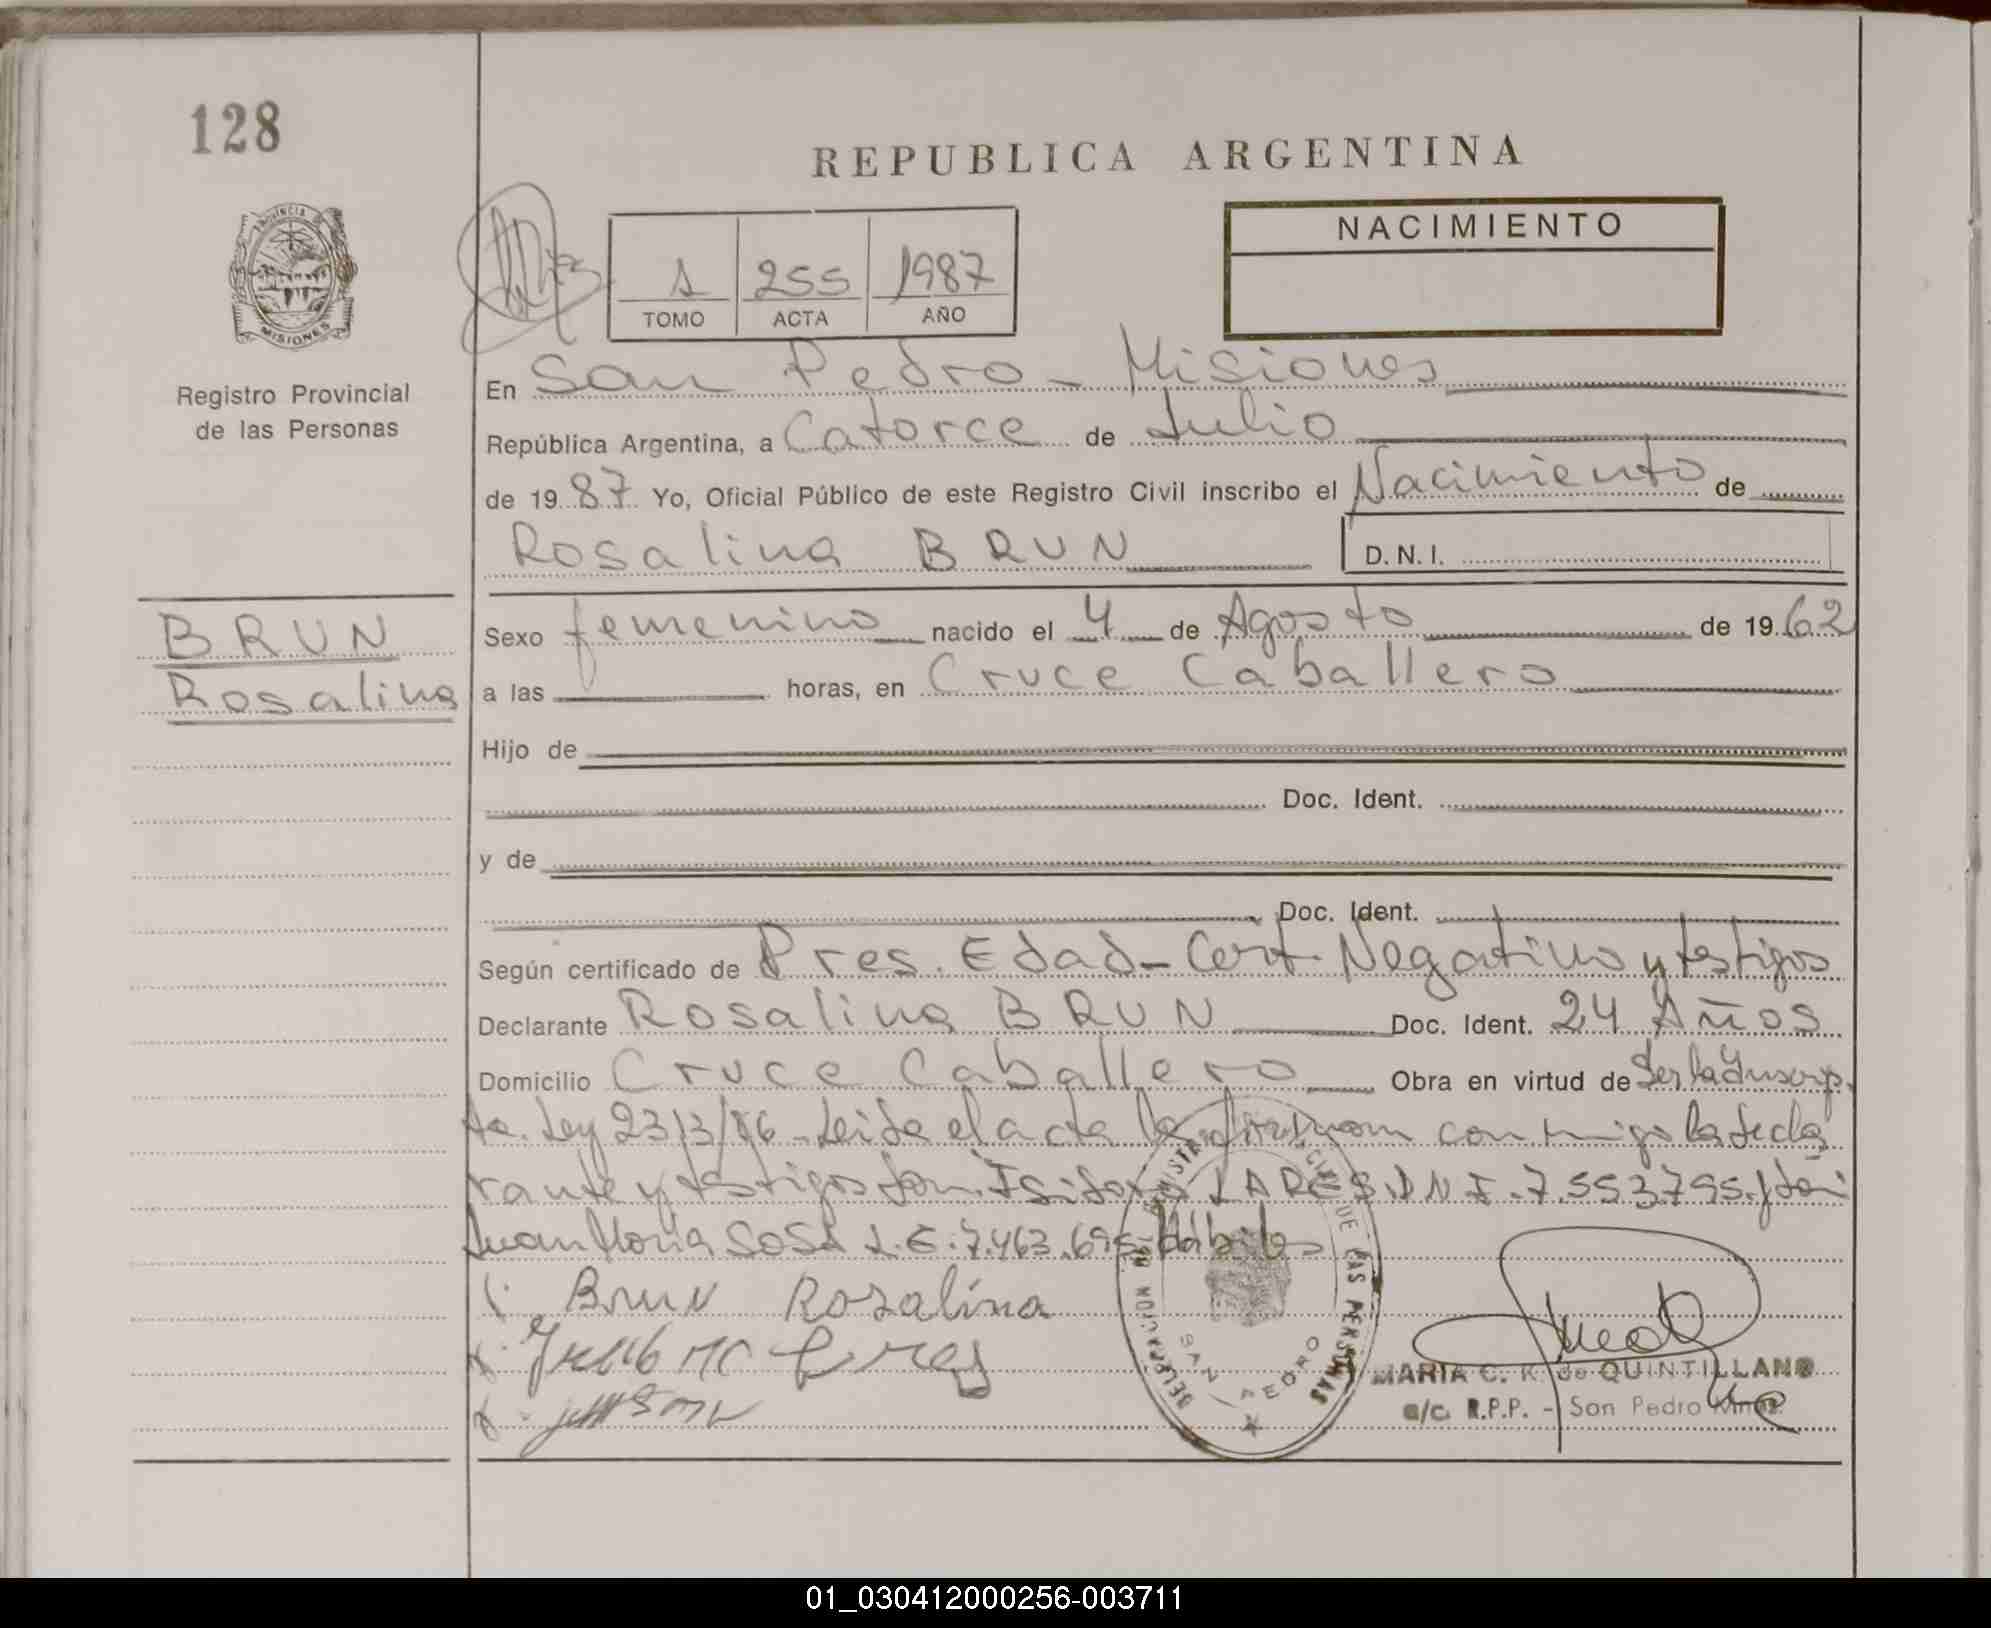 128
REPUBLICA ARGENTINA
NACIMIENTO
1 255 1987
TOMO ACTA AÑO
PROVINCIA DE
MISIONES
Registro Provincial
de las Personas
En San Pedro - Misiones
República Argentina, a Catorce de Julio
de 1987 Yo, Oficial Público de este Registro Civil inscribo el Nacimiento de
Rosalina BRUN D.N.I.
BRUN
Rosalina
Sexo femenino nacido el 4 de Agosto de 1962
a las horas, en Cruce Caballero
Hijo de
Doc. Ident.
y de
Doc. Ident.
Según certificado de Pres. Edad - Cert. Negativo y testigos
Declarante Rosalina BRUN Doc. Ident. 24 Años
Domicilio Cruce Caballero Obra en virtud de Ser la Inscrip.
Ley Leida el acta la firman conmigo la decla
rante y testigos Don. Isidoro LARES. D N I. 7.553.795. y Don
Juan Maria SOSA L.E. 7.463.695 Hábiles
Brun Rosalina
DELEGACION
DE LAS PERSONAS
SAN PEDRO
MARIA C. K. de QUINTILLAN
a/c. R.P.P. - San Pedro Mnes.
01_030412000256-003711